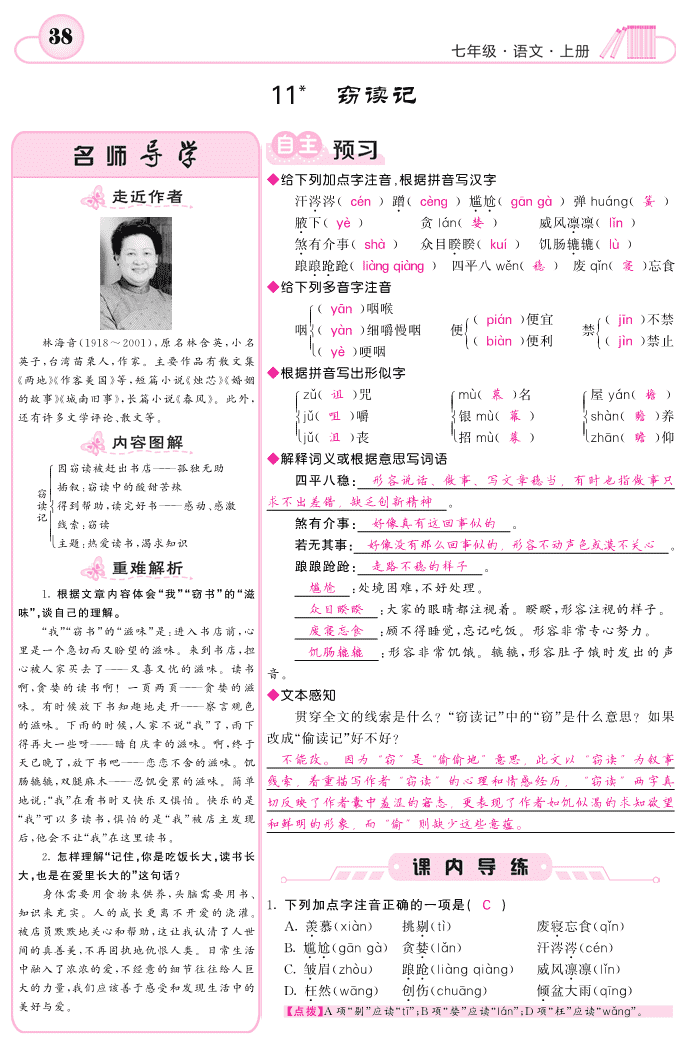 38
七年级·语文·上册
11* 窃读记
名师导学
走近作者
林海音(1918～2001),原名林含英,小名
英子,台湾苗栗人,作家。主要作品有散文集
《两地》《作客美国》等,短篇小说《烛芯》《婚姻
的故事》《城南旧事》,长篇小说《春风》。此外,
还有许多文学评论、散文等。
内容图解
窃读记
因窃读被赶出书店——孤独无助
插叙:窃读中的酸甜苦辣
得到帮助,读完好书——感动、感激
线索:窃读
主题:热爱读书,渴求知识
重难解析
1. 根据文章内容体会“我”“窃书”的“滋
味”,谈自己的理解。
“我”“窃书”的“滋味”是:进入书店前,心
里是一个急切而又盼望的滋味。来到书店,担
心被人家买去了——又喜又忧的滋味。读书
啊,贪婪的读书啊!一页两页——贪婪的滋
味。有时候放下书知趣地走开——察言观色
的滋味。下雨的时候,人家不说“我”了,雨下
得再大一些呀——暗自庆幸的滋味。啊,终于
天已晚了,放下书吧——恋恋不舍的滋味。饥
肠辘辘,双腿麻木——忍饥受累的滋味。简单
地说:“我”在看书时又快乐又惧怕。快乐的是
“我”可以多读书,惧怕的是“我”被店主发现
后,他会不让“我”在这里读书。
2. 怎样理解“记住,你是吃饭长大,读书长
大,也是在爱里长大的”这句话?
身体需要用食物来供养,头脑需要用书、
知识来充实。人的成长更离不开爱的浇灌。
被店员默默地关心和帮助,这让我认清了人世
间的真善美,不再固执地仇恨人类。日常生活
中融入了浓浓的爱,不经意的细节往往给人巨
大的力量,我们应该善于感受和发现生活中的
美好与爱。
自主预习
◆给下列加点字注音,根据拼音写汉字
汗涔涔( cén ) 蹭( cèng ) 尴尬( gān gà ) 弹 huáng( 簧 )
腋下( yè ) 贪 lán( 婪 ) 威风凛凛( lǐn )
煞有介事( shà ) 众目睽睽( kuí ) 饥肠辘辘( lù )
踉踉跄跄( liàng qiàng ) 四平八 wěn( 稳 ) 废 qǐn( 寝 )忘食
◆给下列多音字注音
咽 ( yān )咽喉 ( yàn )细嚼慢咽 ( yè )哽咽
便 ( pián )便宜 ( biàn )便利
禁 ( jīn )不禁 ( jìn )禁止
◆根据拼音写出形似字
zǔ( 诅 )咒 mù( 慕 )名 屋 yán( 檐 )
jǔ( 咀 )嚼 银 mù( 幕 ) shàn( 赡 )养
jǔ( 沮 )丧 招 mù( 募 ) zhān( 瞻 )仰
◆解释词义或根据意思写词语
四平八稳: 形容说话、做事、写文章稳当,有时也指做事只
求不出差错,缺乏创新精神 。
煞有介事: 好像真有这回事似的 。
若无其事: 好像没有那么回事似的,形容不动声色或漠不关心 。
踉踉跄跄: 走路不稳的样子 。
尴尬 :处境困难,不好处理。
众目睽睽 :大家的眼睛都注视着。睽睽,形容注视的样子。
废寝忘食 :顾不得睡觉,忘记吃饭。形容非常专心努力。
饥肠辘辘 :形容非常饥饿。辘辘,形容肚子饿时发出的声
音。
◆文本感知
贯穿全文的线索是什么?“窃读记”中的“窃”是什么意思?如果
改成“偷读记”好不好?
不能改。因为“窃”是“偷偷地”意思,此文以“窃读”为叙事
线索,着重描写作者“窃读”的心理和情感经历,“窃读”两字真
切反映了作者囊中羞涩的窘态,更表现了作者如饥似渴的求知欲望
和鲜明的形象,而“偷”则缺少这些意蕴。
课内导练
1. 下列加点字注音正确的一项是( C )
A. 羡慕(xiàn) 挑剔(tì) 废寝忘食(qǐn)
B. 尴尬(gān gà) 贪婪(lǎn) 汗涔涔(cén)
C. 皱眉(zhòu) 踉跄(liàng qiàng) 威风凛凛(lǐn)
D. 枉然(wāng) 创伤(chuāng) 倾盆大雨(qīng)
【点拨】A项“剔”应读“tī”;B项“婪”应读“lán”;D项“枉”应读“wǎng”。